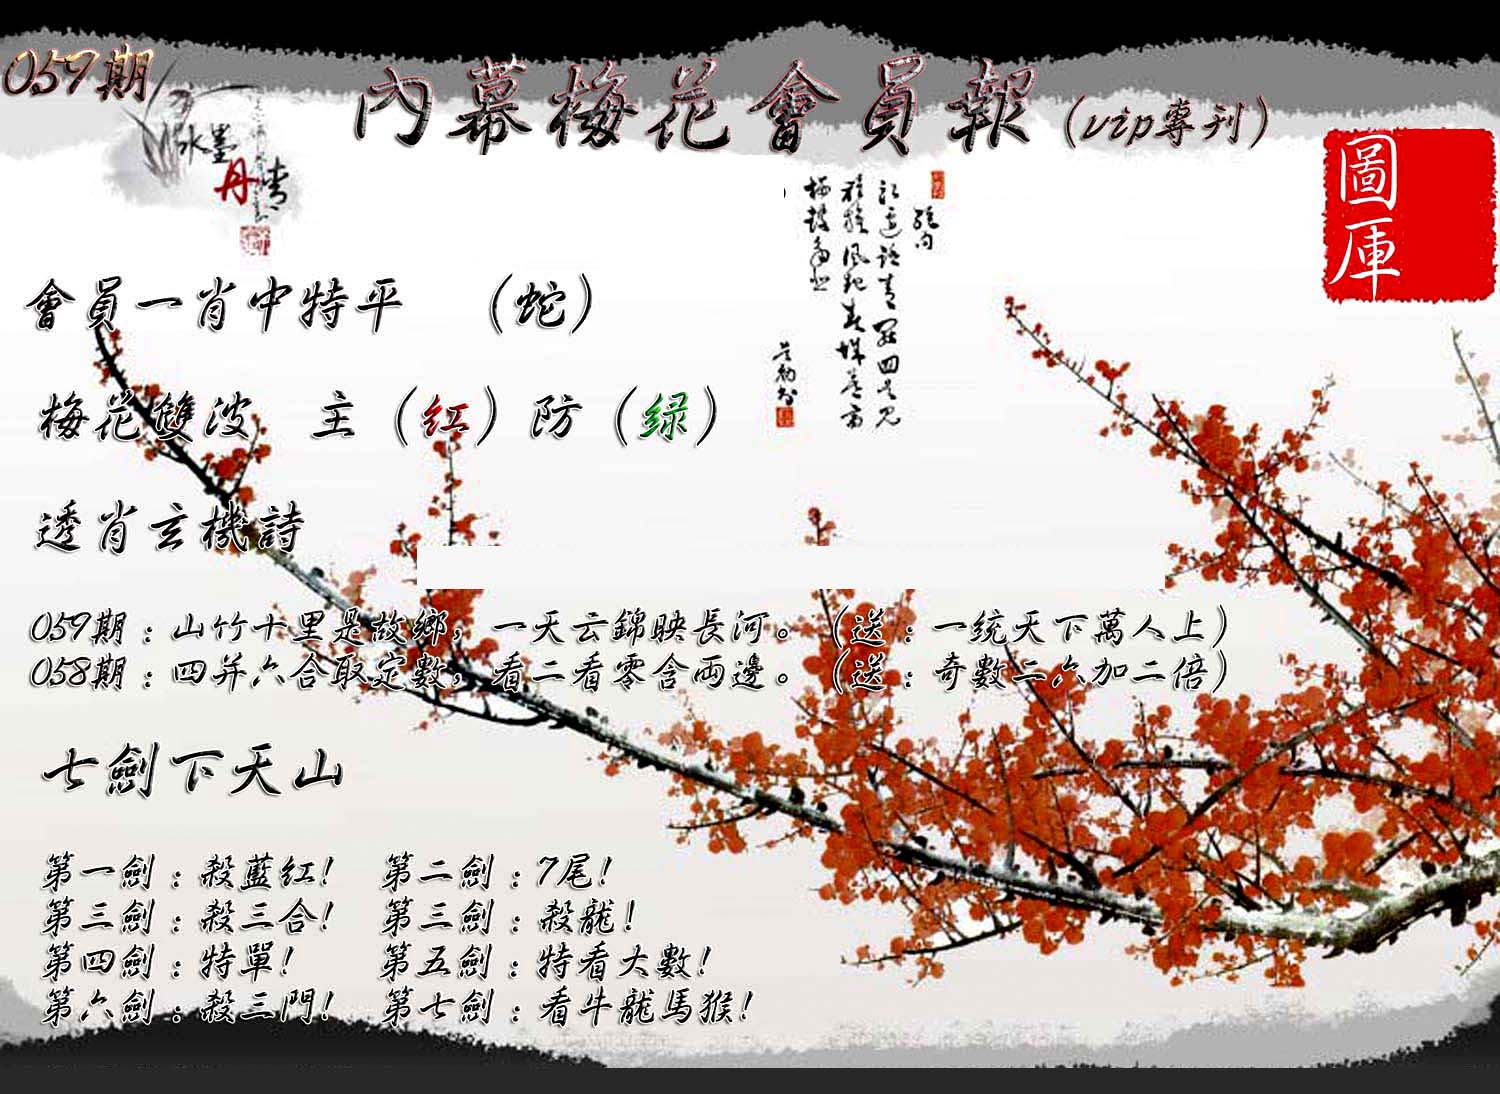 059期
內幕梅花會員報（vip專刊）
水墨
丹青
圖庫
會員一肖中特平 （蛇）
梅花雙波 主（红）防（绿）
透肖玄機詩
059期：山竹十里是故鄉，一天云錦映長河。（送：一统天下萬人上）
058期：四并六合取定數，看二看零含両邊。（送：奇數二六加二倍）
七劍下天山
第一劍：殺藍红！ 第二劍：7尾！
第三劍：殺三合！ 第三劍：殺龍！
第四劍：特單！ 第五劍：特看大數！
第六劍：殺三門！ 第七劍：看牛龍馬猴！